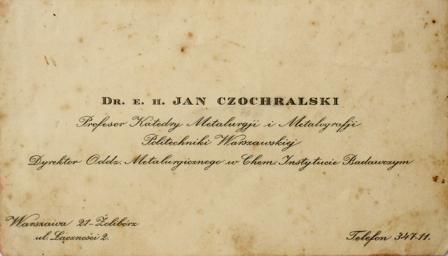 DR. E. H. JAN CZOCHRALSKI
Profesor Katedry Metalurgji i Metalografji
Politechniki Warszawskiej
Dyrektor Oddz. Metalurgicznego w Chem. Instytucie Badawczym
Warszawa 21-Żoliborz
ul. Łączności 2.
Telefon 347-11.